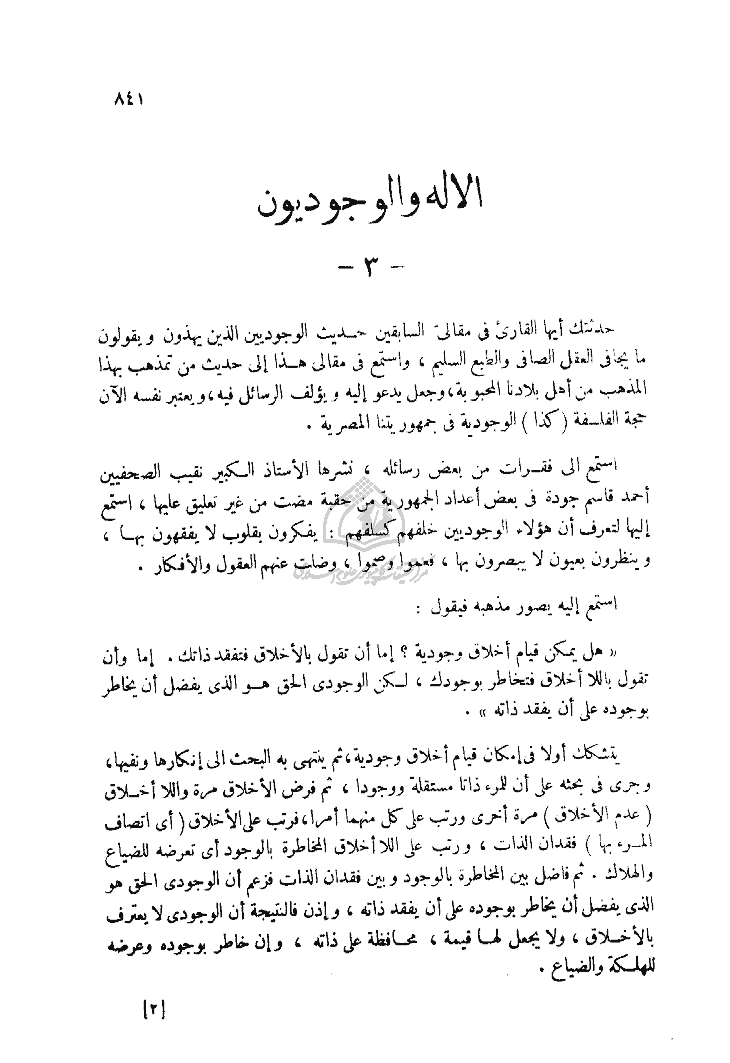 ٨٤١
الاله والوجوديون
- ٣ -
حدثتك أيها القارئ فى مقالىّ السابقين حديث الوجوديين الذين يهذون ويقولون
ما يجافى العقل الصافى والطبع السليم ، واستمع فى مقالى هذا إلى حديث من تمذهب بهذا
المذهب من أهل بلادنا المحبوبة، وجعل يدعو إليه ويؤلف الرسائل فيه، ويعتبر نفسه الآن
حجة الفلسفة ( كذا ) الوجودية فى جمهوريتنا المصرية .
استمع الى فقرات من بعض رسائله ، نشرها الأستاذ الكبير نقيب الصحفيين
أحمد قاسم جودة فى بعض أعداد الجمهورية من حقبة مضت من غير تعليق عليها ، استمع
إليها لتعرف أن هؤلاء الوجوديين خلفهم كسلفهم : يفكرون بقلوب لا يفقهون بها ،
وينظرون بعيون لا يبصرون بها ، فعموا وصموا ، وضلت عنهم العقول والأفكار .
استمع إليه يصور مذهبه فيقول :
« هل يمكن قيام أخلاق وجودية ؟ إما أن تقول بالأخلاق فتفقد ذاتك . إما وأن
تقول باللا أخلاق فتخاطر بوجودك ، لكن الوجودى الحق هو الذى يفضل أن يخاطر
بوجوده على أن يفقد ذاته » .
يتشكك أولا فى إمكان قيام أخلاق وجودية، ثم ينتهى به البحث الى إنكارها ونفيها،
وجرى فى بحثه على أن للمرء ذاتا مستقلة ووجودا ، ثم فرض الأخلاق مرة واللا أخلاق
( عدم الأخلاق ) مرة أخرى ورتب على كل منهما أمرا، فرتب على الأخلاق ( أى اتصاف
المرء بها ) فقدان الذات ، ورتب على اللا أخلاق المخاطرة بالوجود أى تعرضه للضياع
والهلاك . ثم فاضل بين المخاطرة بالوجود وبين فقدان الذات فزعم أن الوجودى الحق هو
الذى يفضل أن يخاطر بوجوده على أن يفقد ذاته ، وإذن فالنتيجة أن الوجودى لا يعترف
بالأخلاق ، ولا يجعل لها قيمة ، محافظة على ذاته ، وإن خاطر بوجوده وعرضه
للهلكة والضياع .
[٢]